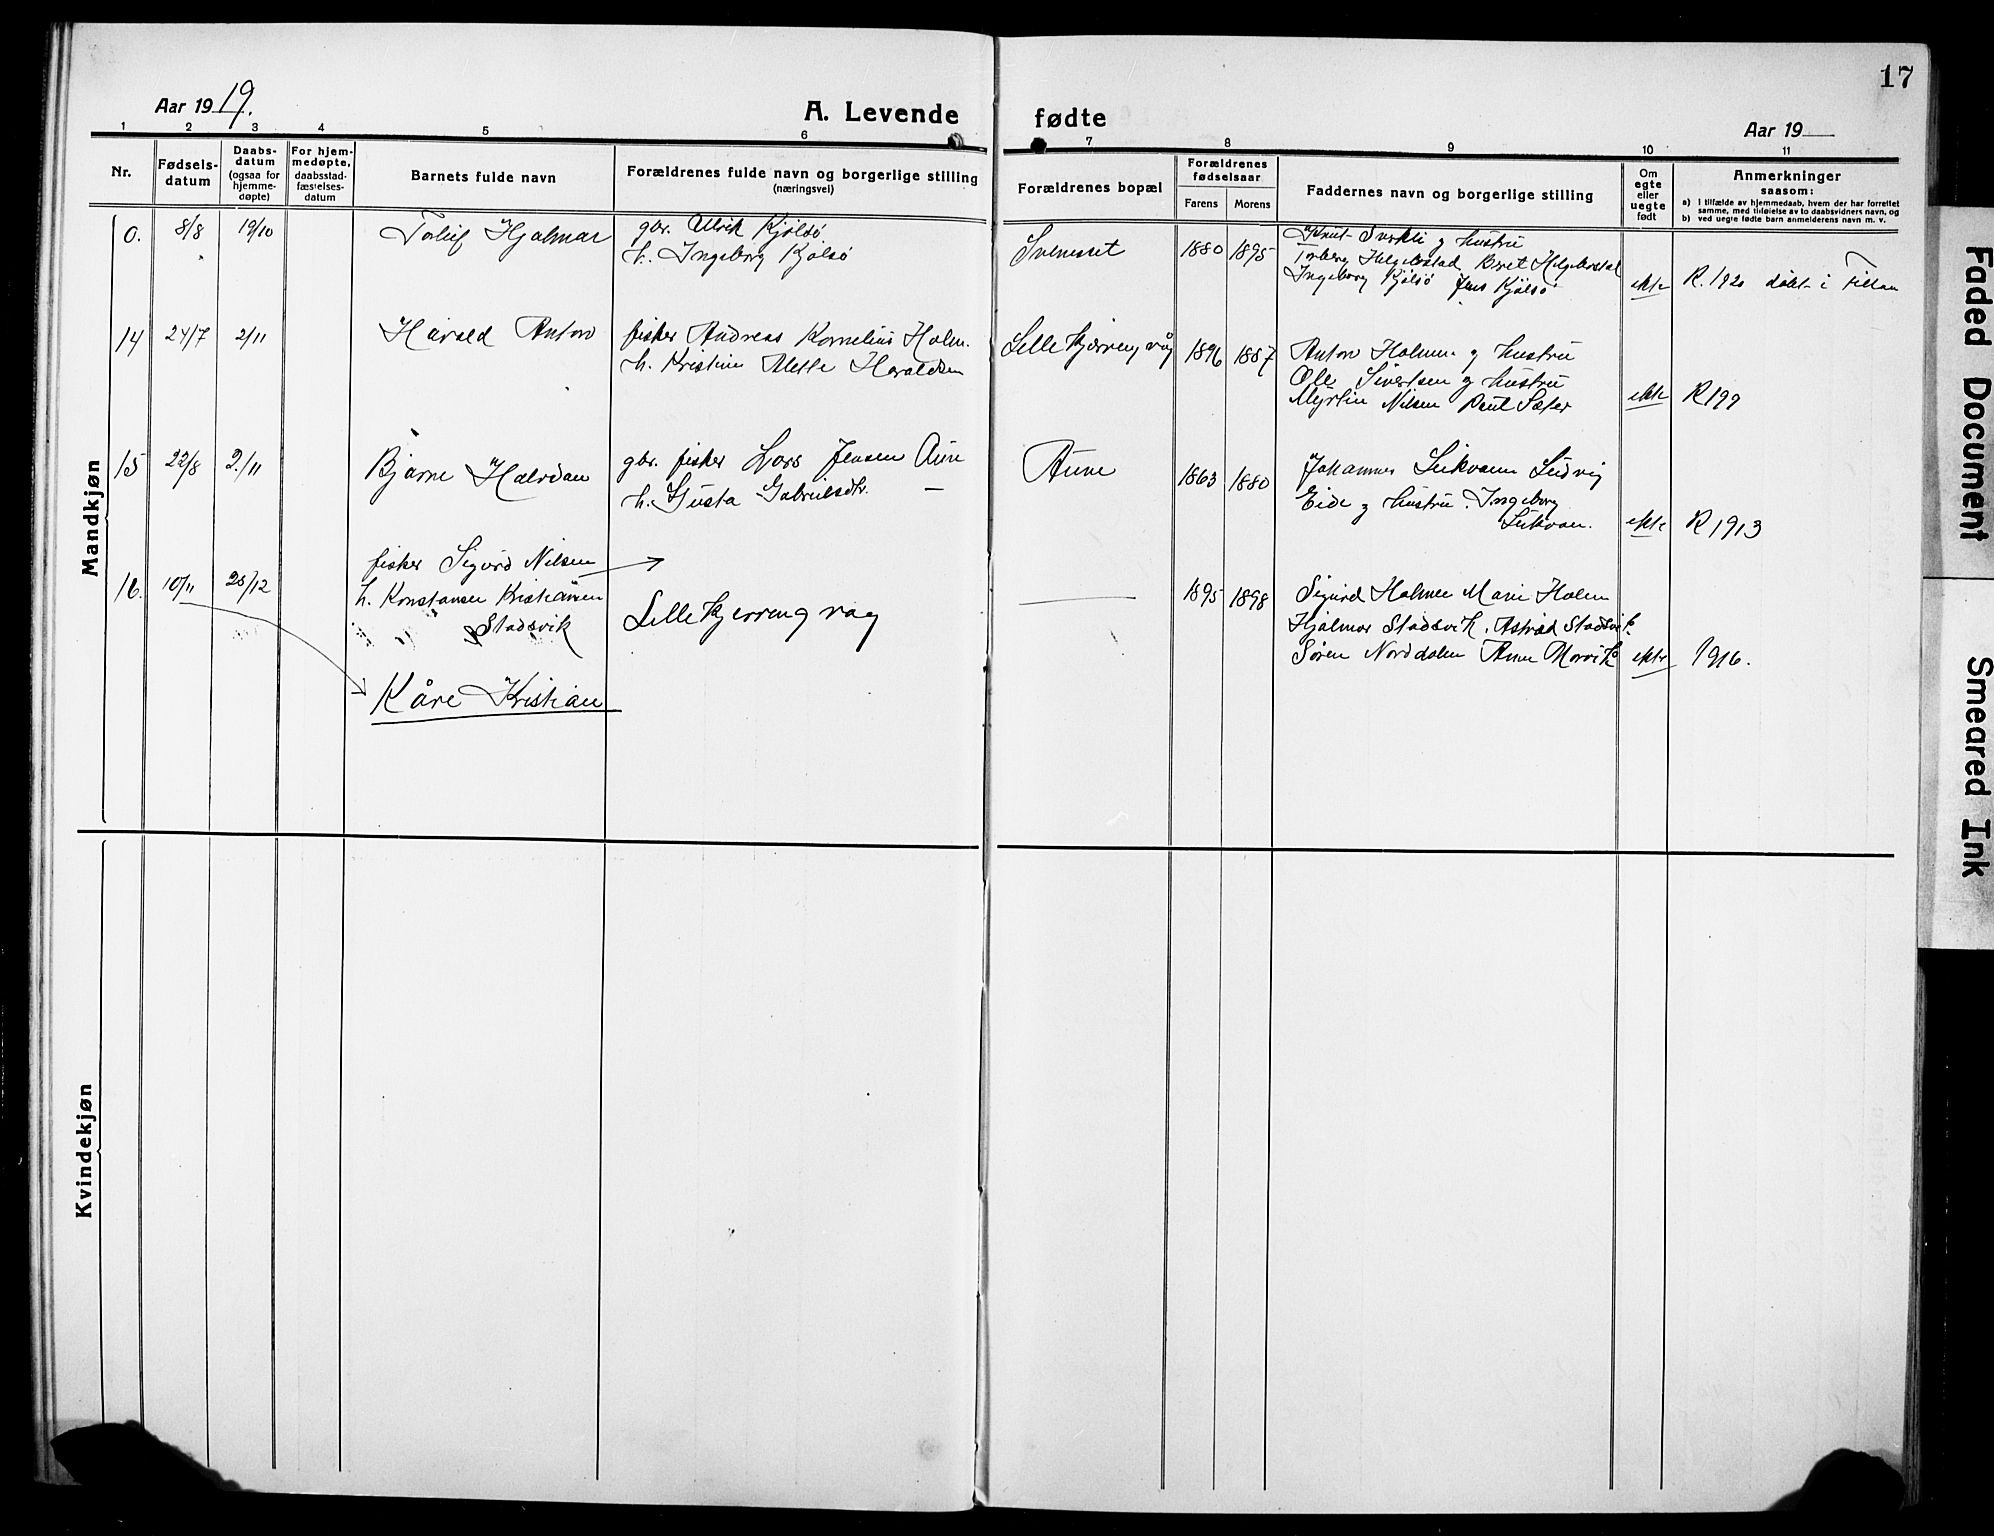 17
Aar 1919.
A. Levende fødte
Aar 19
1 2 3 4 5 6 7 8 9 10 11
Nr.
Fødsels-
datum
Daabs-
datum
(ogsaa for
hjemme-
døpte)
For hjem-
medøpte,
daabsstad-
fæstelses-
datum
Barnets fulde navn
Forældrenes fulde navn og borgerlige stilling
(næringsvei)
Forældrenes bopæl
Forældrenes
fødselsaar
Farens
Morens
Faddernes navn og borgerlige stilling
Om
egte
eller
uegte
født
Anmerkninger
saasom:
a) I tilfælde av hjemmedaab, hvem der har forrettet
samme, med tilføielse av to daabsvidners navn, og
b) ved uegte fødte barn anmelderens navn m. v.
Mandkjøn
0. 8/8 19/10
Torleif Hjalmar
gbr. Ulrik Kjølsø
h. Ingeborg Kjølsø
1880 1895
Knut og hustru
Torberg Helgebostad Beret Helgebostad
Ingeborg Kjølsø Jens Kjølsø
ekte
R. 1920 døbt i Fillan
14 24/7 2/11
Harald Anton
fisker Andreas Kornelius Holm.
h. Kristine Alette Haraldsen
Lille kjerringvåg
1896 1887
Anton Holm og hustru
Ole Sivertsen og hustru
Nilsen Paul Sæter
ekte
R 199
15 22/8 2/11
Bjarne Halvdan
gbr. fisker Lars Jensen Aune
h. Gusta Gabrielsdtr. —
Aune
1863 1880
Johannes Leikvam Ludvig
Eide og hustru. Ingeborg
Leikvam.
ekte
R 1913
16. 10/11 28/12
fisker Sigurd Nilsen
h. Konstanse Kristiansen
Stadsvik
Lille kjerringvåg
1895 1898
Sigurd Holm Marie Holm
Hjalmar Stadsvik. Astrid Stadsvik.
Søren Norddalen Anne
ekte
1916.
Kåre Kristian
Kvindekjøn
Faded Document
Smeared Ink